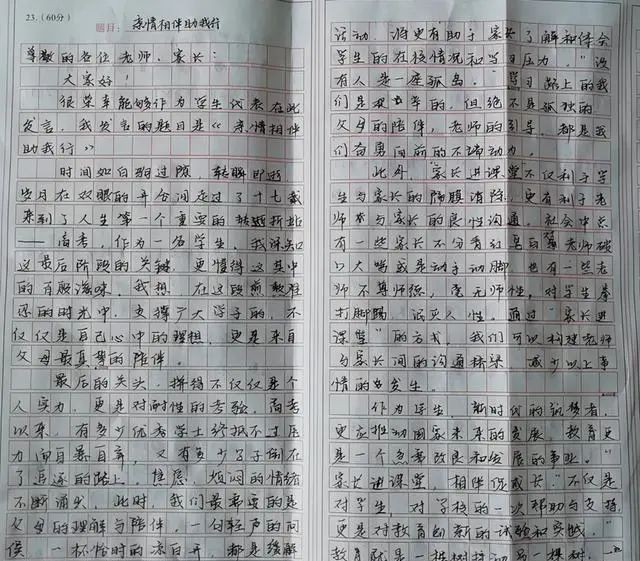 23.(60分)
题目: 亲情相伴助我行
尊敬的各位老师、家长:
大家好!
很荣幸能够作为学生代表在此
发言,我发言的题目是《亲情相伴
助我行》
时间如白驹过隙,转瞬即逝,
岁月在双眼的开合间走过了十七载
来到了人生第一个重要的转折
——高考,作为一名学生,我深知
这最后阶段的关键,更懂得这其中
的百般滋味。我想,在这段煎熬难
忍的时光中,支撑广大学子的,不
仅仅是自己心中的理想,更是来自
父母最真挚的陪伴。
最后的关头,拼得不仅仅是个
人实力,更是对耐性的考验。高考
以来,有多少优秀学士终抵不过压
力而自暴自弃,又有多少了子倒在
了追逐的路上。焦虑、烦闷的情绪
不断涌现,此时,我们最需要的是
父母的理解与陪伴,一句轻声的问
候,一杯恰时的凉白开,都是缓解
活动,将更有助于家长了解和体会
学生的在校情况和学习压力。“没
有人是一座孤岛。”学习路上的我
们是艰辛的,但绝不是孤独的
父母的陪伴,老师的引导,都是我
们奋勇向前的不竭动力。
此外,家长进课堂不仅利于学
生与家长的隔膜消除,更有利于老
师与家长的良性沟通。社会中总
有一些家长不分青红皂白对老师破
口大骂或是动手动脚,也有一些老
师不尊师德,毫无师性,对学生拳
打脚踢,泯灭人性。通过“家长进
课堂”的方式,我们可以构建老师
与家长间的沟通桥梁,减少以上事
情的发生。
作为学生,新时代的筑梦者,
更应推动国家未来的发展,教育更
是一个急需改良和发展的事业。“
家长进课堂,相伴促成长”不仅是
对学生,对学校的一次帮助与支持,
更是对教育创新的试验和实践。“
教育就是一棵树摇动另一棵树,一